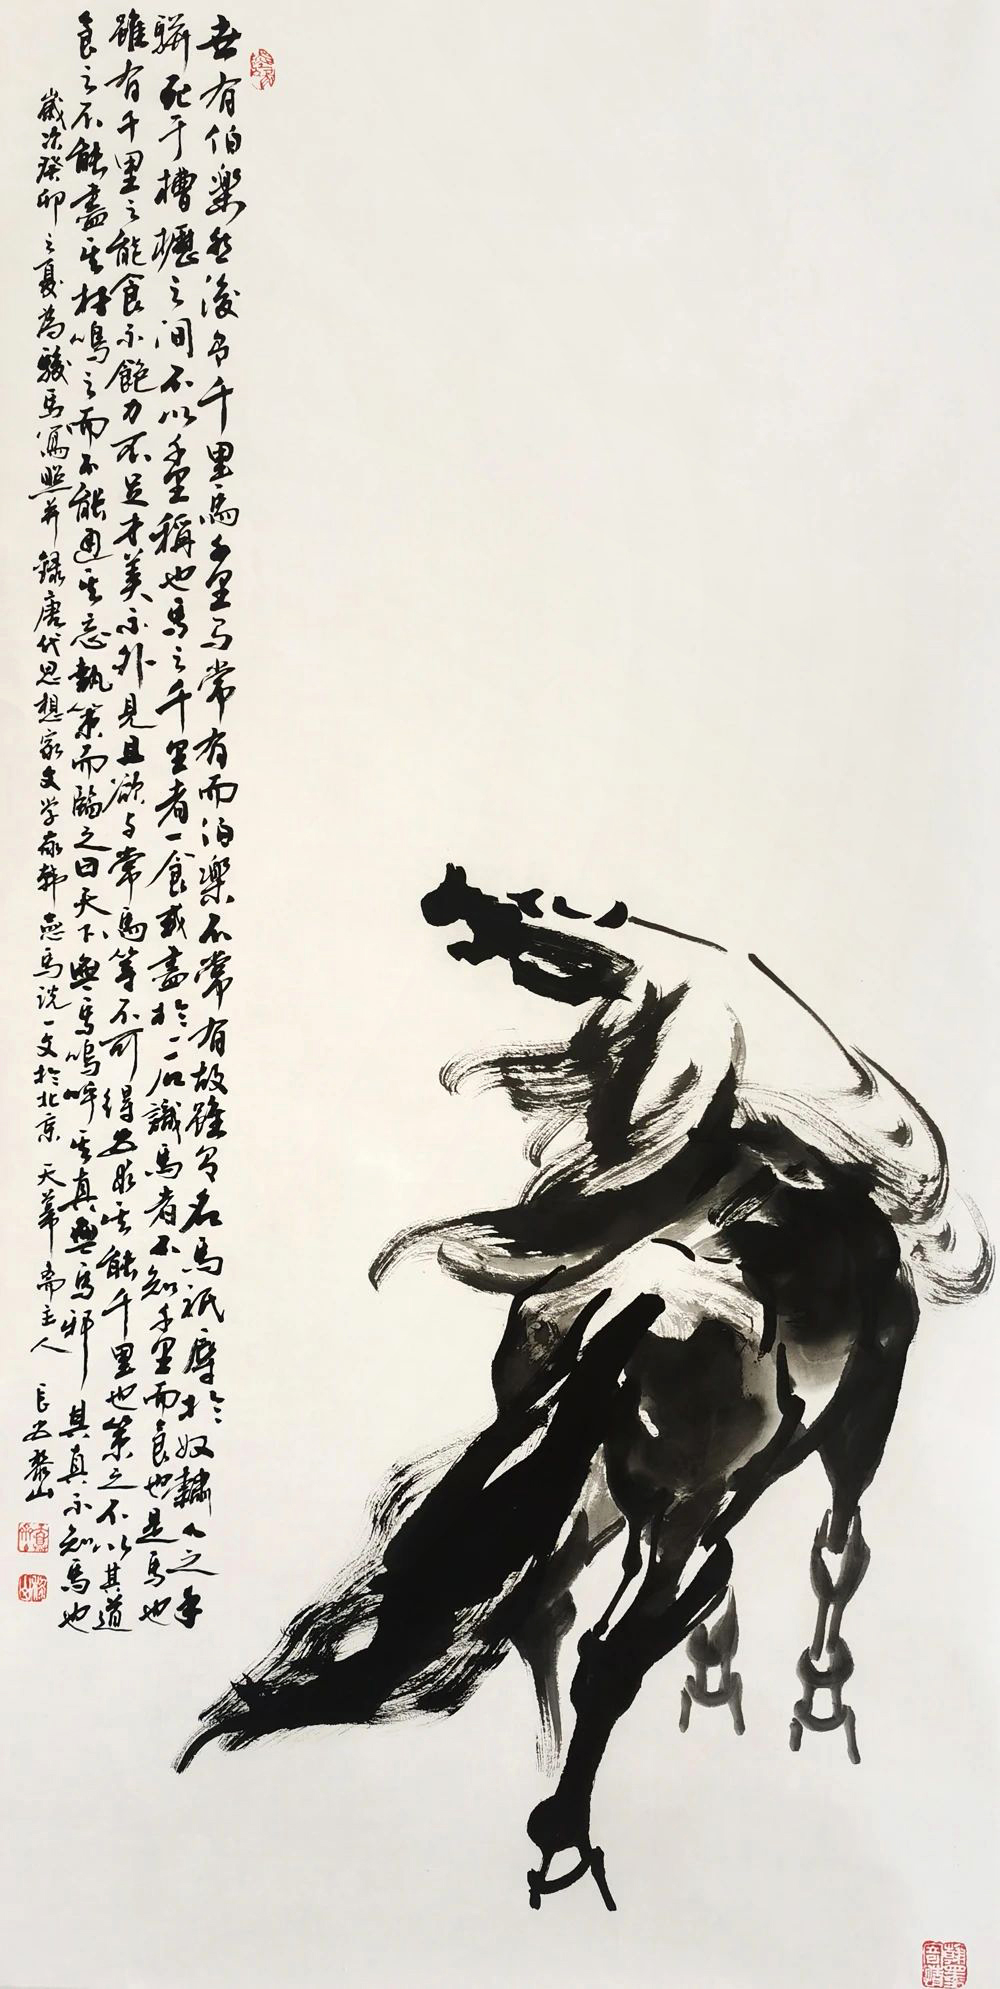 世有伯樂然後有千里馬千里马常有而伯樂不常有故雖有名馬祇辱於奴隸人之手
駢死于槽櫪之間不以千里稱也馬之千里者一食或盡於一石識馬者不知千里而食也是馬也
雖有千里之能食不飽力不足才美不外見且欲与常馬等不可得安求其能千里也策之不以其道
食之不能盡其材鳴之而不能通其意執策而臨之曰天下無馬嗚呼其真無馬邪其真不知馬也
歲次癸卯之夏為駿馬寫照并録唐代思想家文学家韩愈馬说一文於北京天華斋主人長安山